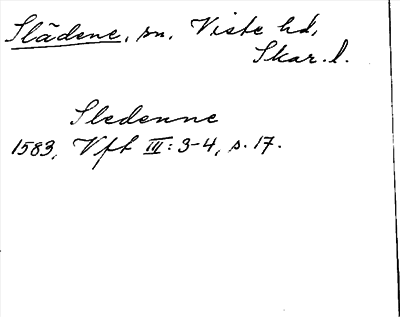 Slädene, sn, Viste hd,
Skar. l.
Sledenne
1583, Vft III: 3-4, s. 17.